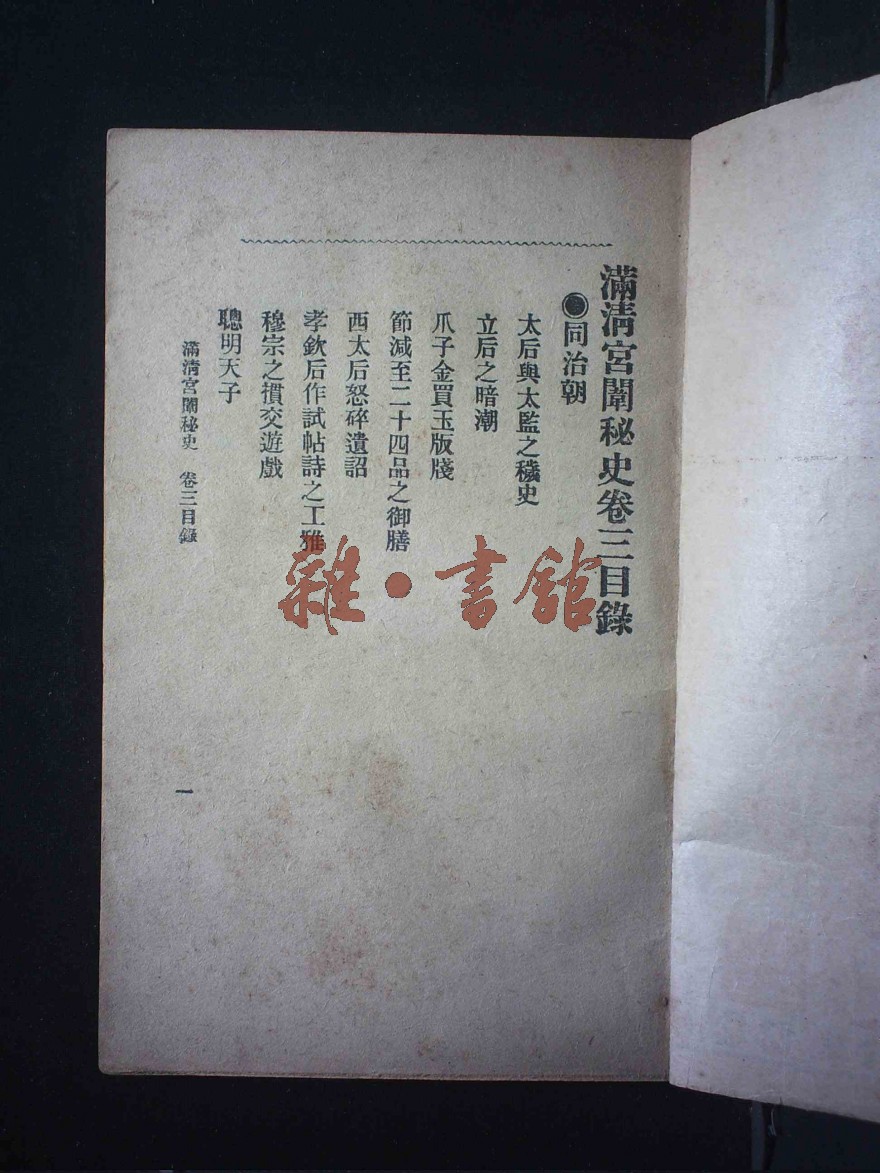 滿淸宮闈秘史卷三目錄
●同治朝
太后與太監之穢史
立后之暗潮
爪子金買玉版牋
節減至二十四品之御膳
西太后怒碎遺詔
孝欽后作試帖詩之工雅
穆宗之摜交遊戲
聰明天子
滿淸宮闈秘史 卷三目錄
一
雜·書館